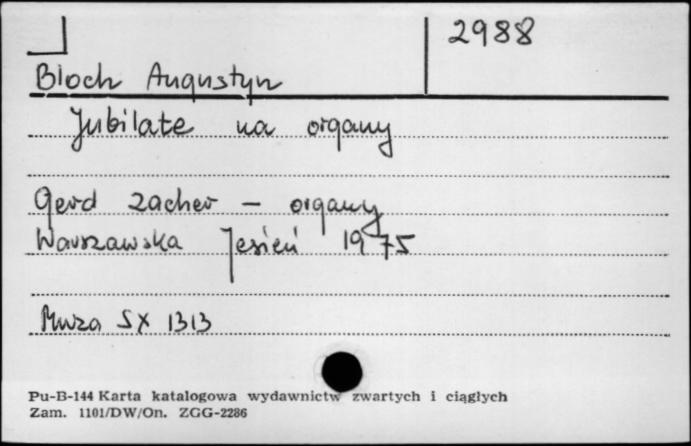 2988
Bloch Augustyn
Jubilate na organy
Gerd Zacher – organy
Warszawska Jesień 1975
Muza SX 1313
Pu-B-144 Karta katalogowa wydawnictw zwartych i ciągłych
Zam. 1101/DW/On. ZGG-2286